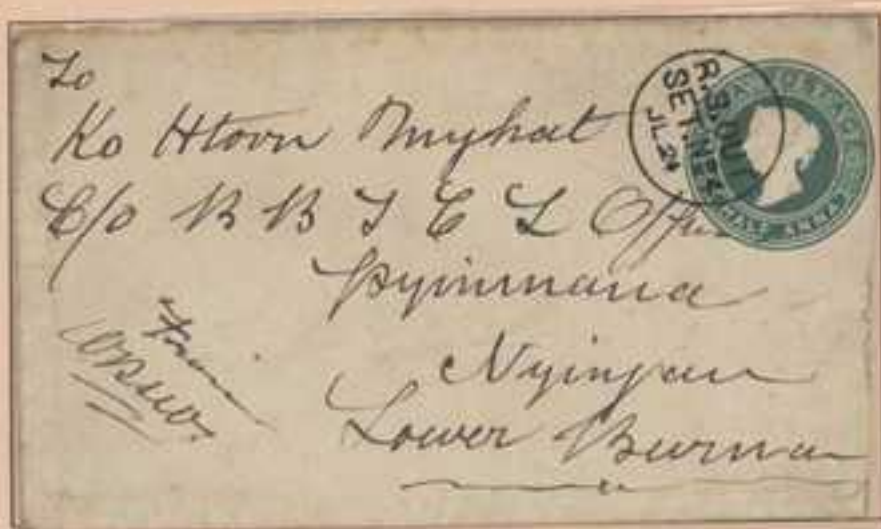 To
Ko Htoon Myhat
C/o B B T C L Office
Pyinmana
Lower Burma
From
R.S. OUT
SET. Nº
JL 2
POSTAGE
HALF ANNA